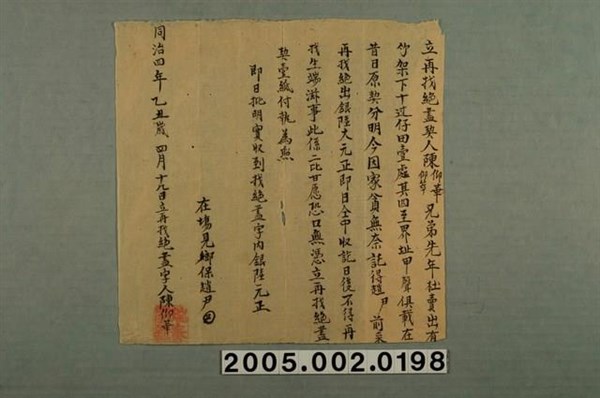 立再找絕盡契人陳仰華仰等兄弟先年杜賣出有
竹架下十辺仔田壹處其四至界址甲聲俱載在
昔日原契分明今因家貧無奈託得趙尹前來
再找絕出銀陸大元正即日仝中收訖日後不得再
找生端滋事此係二比甘愿恐口無憑立再找絕盡
契壹紙付執為照
即日批明實收到找絕盡字內銀陸元正
在場見鄉保趙尹
同治四年乙丑歲四月十九日立再找絕盡字人陳仰華
2005.002.0198